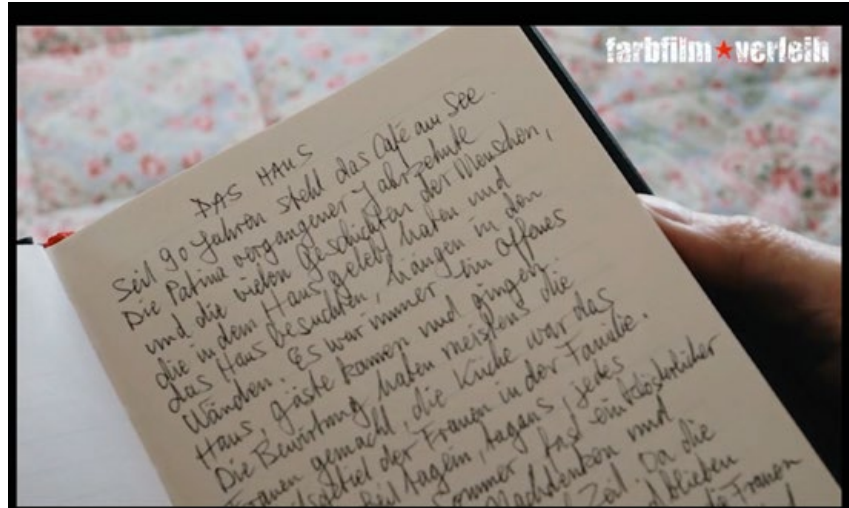 farbfilm★verleih
DAS HAUS
Seit 90 Jahren steht das Café am See.
Die Patina vergangener Jahrzehnte
und die vielen Geschichten der Menschen,
die in dem Haus gelebt haben und
das Haus besuchten, hängen in den
Wänden. Es war immer ein offenes
Haus, Gäste kamen und gingen.
Die Bewirtung haben meistens die
Frauen gemacht, die Küche war das
der Frauen in der Familie.
tagein, tagaus, jedes
Sommer fast ein klösterlicher
Nachdenken und
Zeil. Da die
blieben
die Frauen